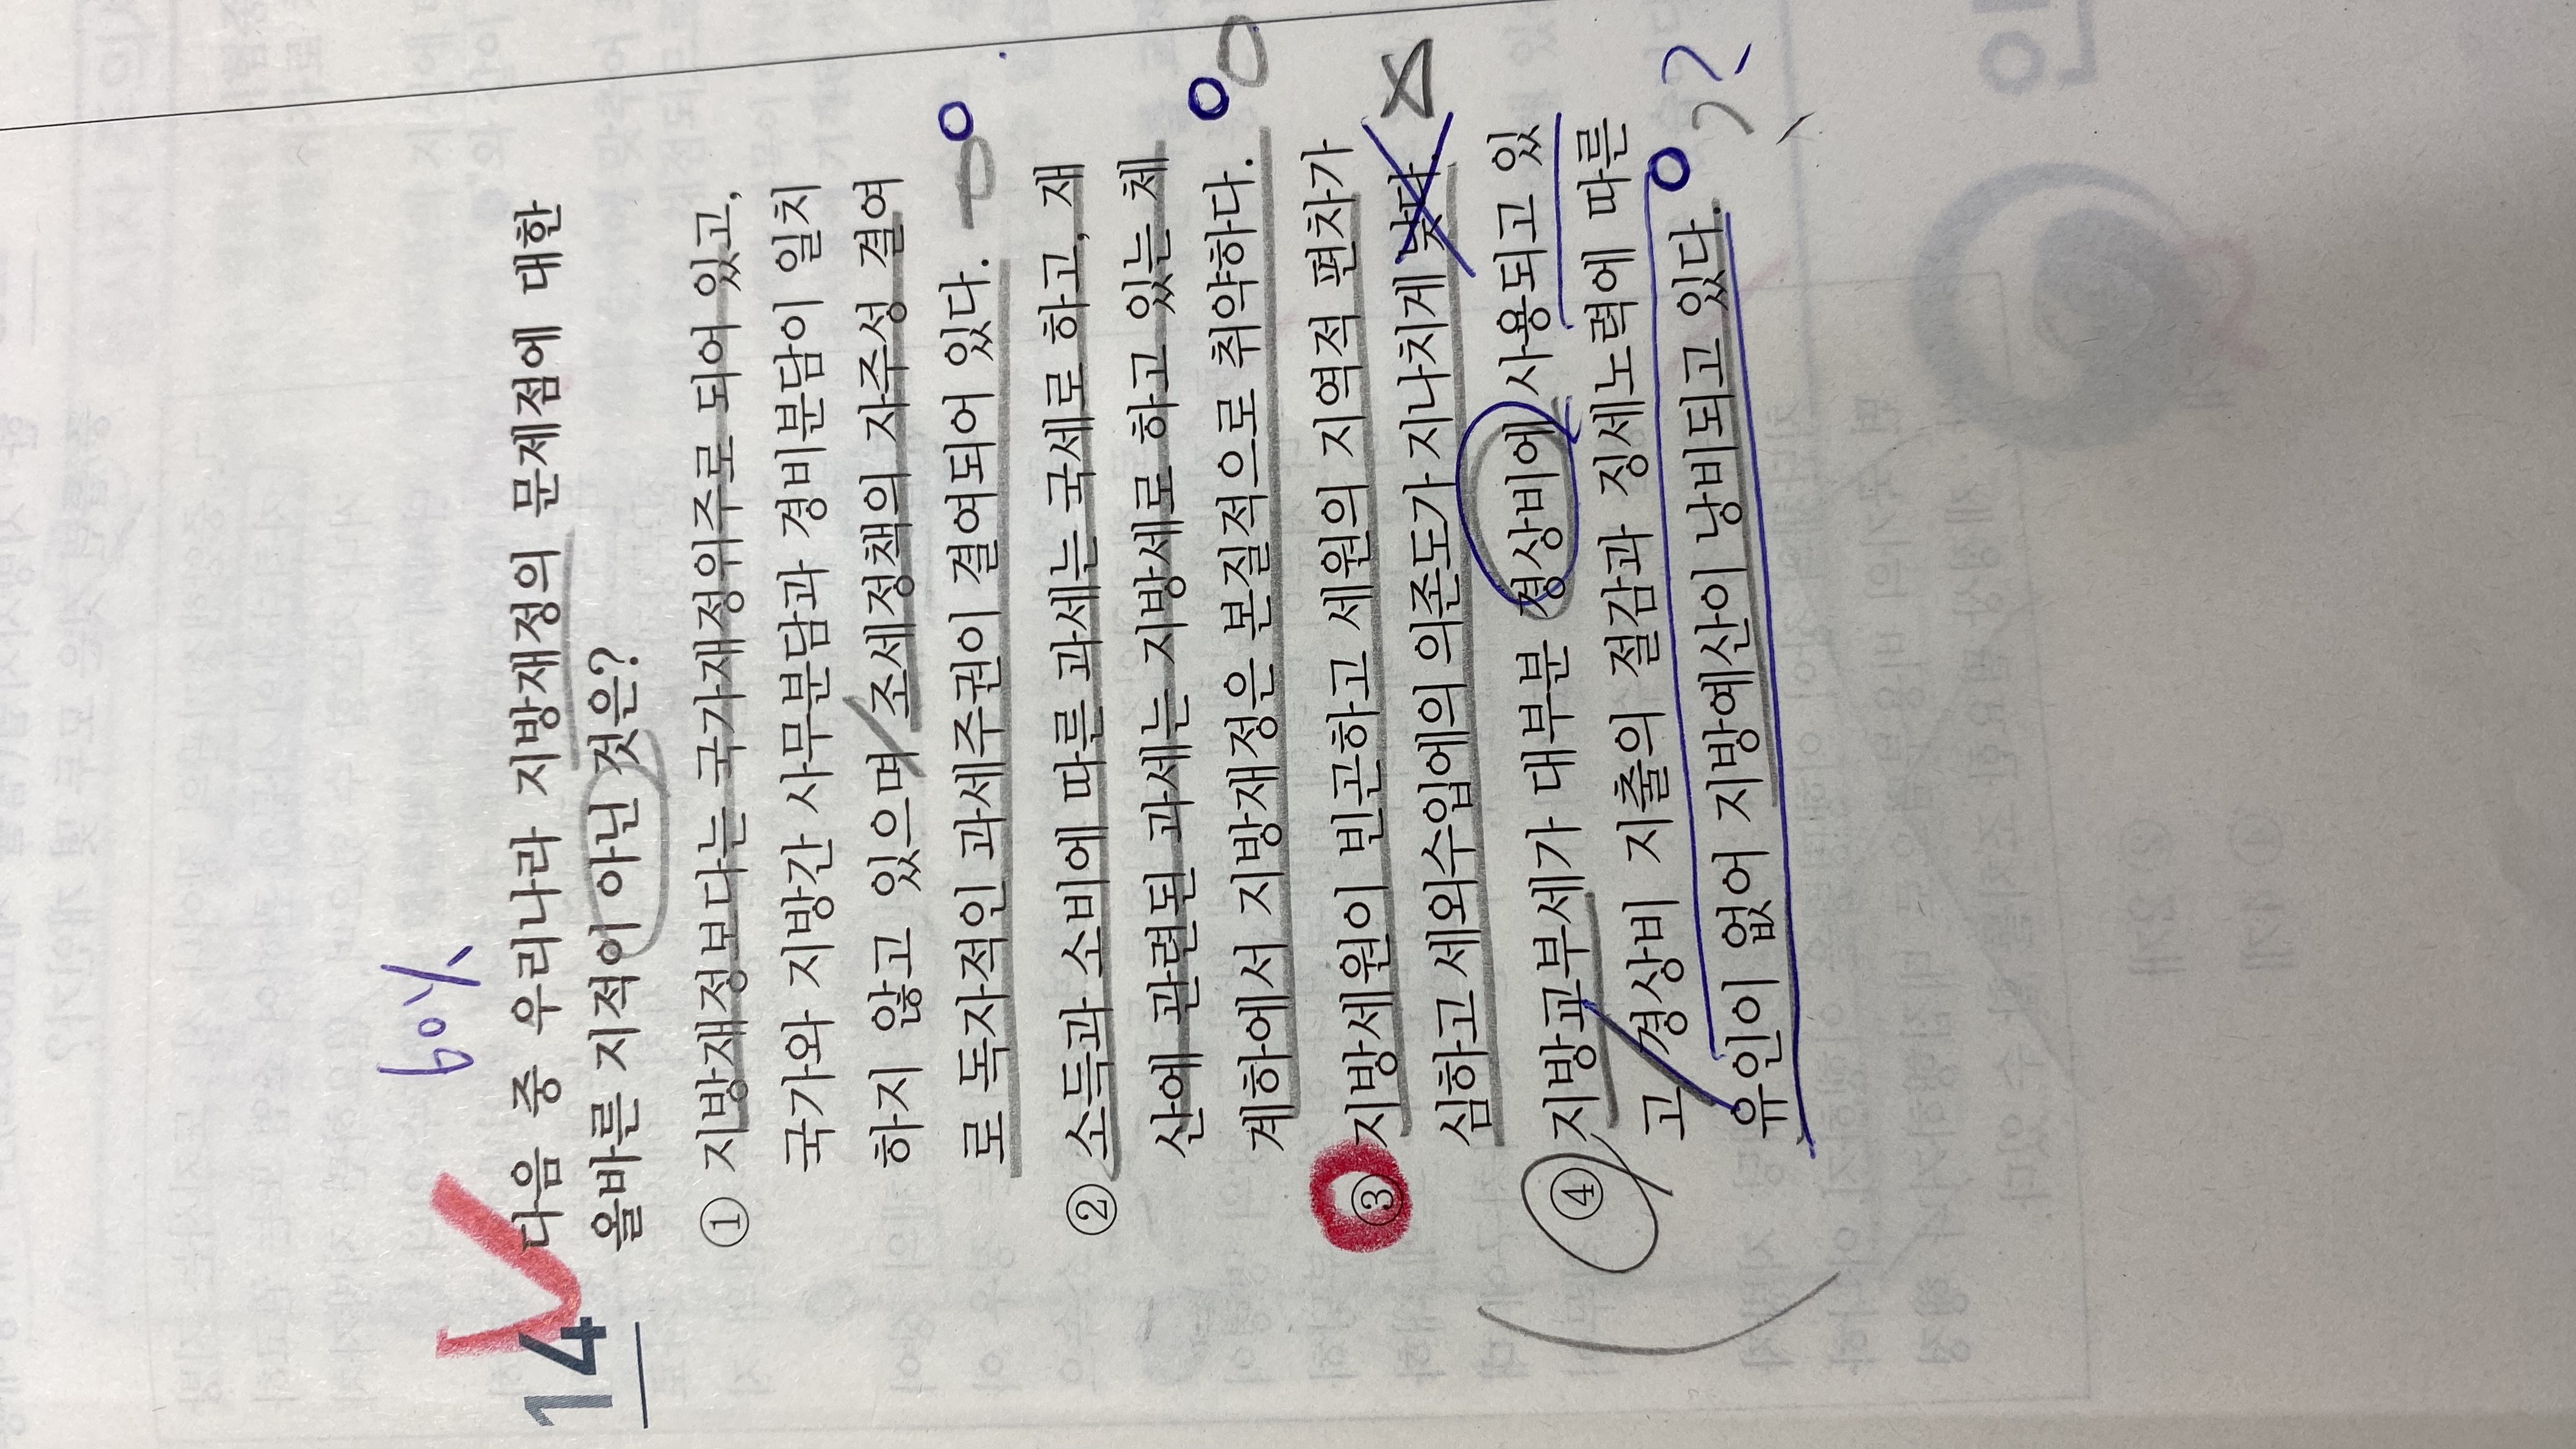 60%
14
다음 중 우리나라 지방재정의 문제점에 대한
올바른 지적이 아닌 것은?
① 지방재정보다는 국가재정위주로 되어 있고,
국가와 지방간 사무분담과 경비분담이 일치
하지 않고 있으며 조세정책의 자주성 결여
로 독자적인 과세주권이 결여되어 있다.
② 소득과 소비에 따른 과세는 국세로 하고, 재
산에 관련된 과세는 지방세로 하고 있는 체
계하에서 지방재정은 본질적으로 취약하다.
③ 지방세원이 빈곤하고 세원의 지역적 편차가
심하고 세외수입에의 의존도가 지나치게 낮다.
④ 지방교부세가 대부분 경상비에 사용되고 있
고 경상비 지출의 절감과 징세노력에 따른
유인이 없어 지방예산이 낭비되고 있다.